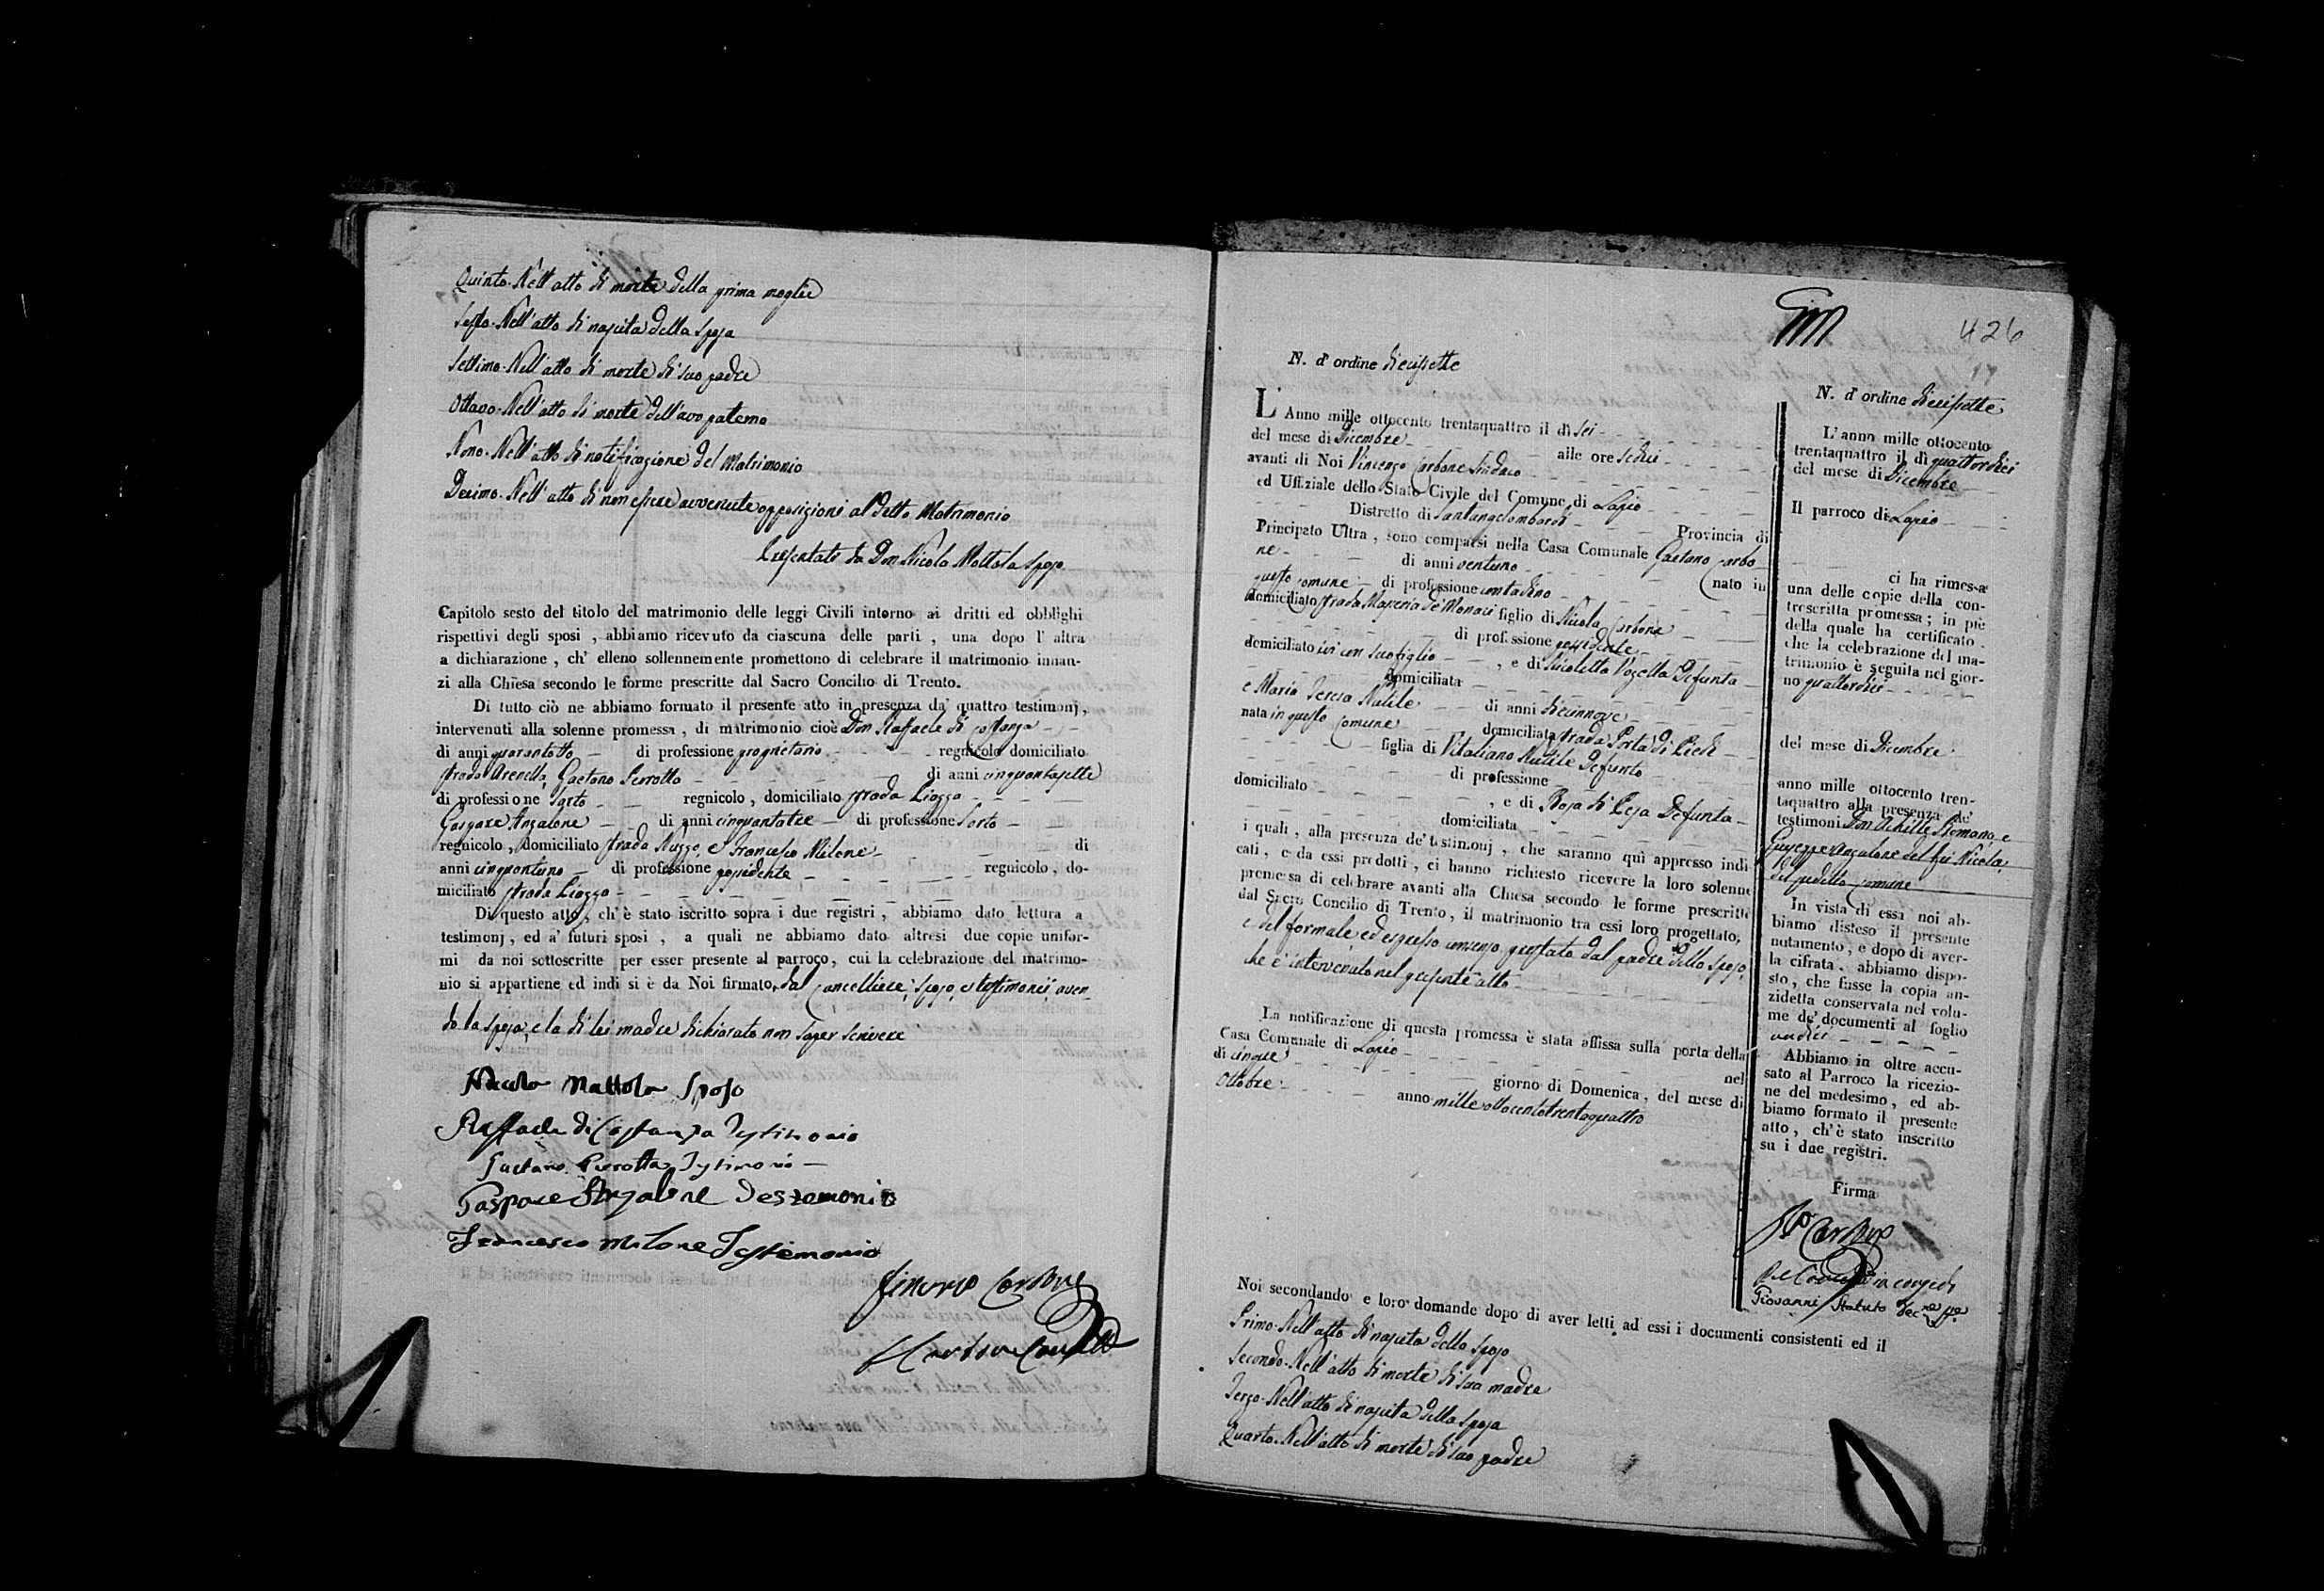 Quinto. Nell'atto di morte della prima moglie
Sesto. Nell'atto di nascita della sposa
Settimo. Nell'atto di morte di suo padre
Ottavo. Nell'atto di morte dell'avo paterno
Nono. Nell'atto di notificazione del Matrimonio
Decimo. Nell'atto di non essere avvenute opposizioni al detto Matrimonio
Presentate da Don Nicola Mottola sposo
Capitolo sesto del titolo del matrimonio delle leggi Civili intorno ai dritti ed obblighi
rispettivi degli sposi , abbiamo ricevuto da ciascuna delle parti , una dopo l' altra
a dichiarazione , ch' elleno sollennemente promettono di celebrare il matrimonio innan-
zi alla Chiesa secondo le forme prescritte dal Sacro Concilio di Trento.
Di tutto ciò ne abbiamo formato il presente atto in presenza da' quattro testimonj,
intervenuti alla solenne promessa , di matrimonio cioè Don Raffaele di Costanza
di anni quarantotto di professione proprietario regnicolo domiciliato
strada Arenella, Gaetano Perrotta di anni cinquantasette
di professione Sarto regnicolo , domiciliato strada Piazza
Gaspare Anzalone di anni cinquantatre di professione Sarto
regnicolo , domiciliato strada Nuzzo, e Francesco Milone di
anni cinquantuno di professione possidente regnicolo , do-
miciliato strada Piazza
Di questo atto , ch' è stato iscritto sopra i due registri , abbiamo dato lettura a
testimonj , ed a' futuri sposi , a quali ne abbiamo dato altresì due copie unifor-
mi da noi sottoscritte per esser presente al parroco, cui la celebrazione del matrimo-
nio si appartiene ed indi si è da Noi firmato, dal Cancelliere, sposo, e testimonii, aven-
do la sposa, e la di lei madre dichiarato non saper scrivere
Nicola Mottola Sposo
Raffaele di Costanza Testimonio
Gaetano Perrotta Testimonio
Gaspare Anzalone Testemonio
Francesco Milone Testimonio
Vincenzo Carbone
426
17
N. d' ordine diecissette
L' Anno mille ottocento trentaquattro il dì sei
del mese di Dicembre alle ore sedici
avanti di Noi Vincenzo Carbone Sindaco
ed Uffiziale dello Stato Civile del Comune di Lapio
Distretto di Santangelombardi Provincia di
Principato Ultra , sono comparsi nella Casa Comunale Gaetano Carbo-
ne di anni ventuno nato in
questo comune di professione contadino
domiciliato strada Masseria de Monaci figlio di Nicola Carbone
di professione possidente
domiciliato ivi con suo figlio , e di Nicoletta Vozella Defunta
domiciliata
e Maria Teresa Nutile di anni diecinnove
nata in questo Comune domiciliata strada Porta di Piedi
figlia di Vitaliano Nutile Defunto
di professione
domiciliato , e di Rosa di Pesa Defunta
domiciliata
i quali , alla presenza de' testimonj , che saranno quì appresso indi-
cati , e da essi prodotti , ci hanno richiesto ricevere la loro solenne
promessa di celebrare avanti alla Chiesa secondo le forme prescritte
dal Sacro Concilio di Trento, il matrimonio tra essi loro progettato,
e del formale ed espresso consenso prestato dal padre dello sposo,
che è intervenuto nel presente atto
La notificazione di questa promessa è stata affissa sulla porta della
Casa Comunale di Lapio nel
di cinque giorno di Domenica, del mese di
Ottobre anno mille ottocentotrentaquattro
Noi secondando e loro domande dopo di aver letti ad essi i documenti consistenti ed il
Primo. Nell'atto di nascita dello sposo
Secondo. Nell'atto di morte di sua madre
Terzo. Nell'atto di nascita della sposa
Quarto. Nell'atto di morte di suo padre
N. d' ordine diecissette
L' anno mille ottocento
trentaquattro il dì quattordici
del mese di Dicembre
Il parroco di Lapio
ci ha rimessa
una delle copie della con-
troscritta promessa ; in piè
della quale ha certificato
che la celebrazione del ma-
trimonio è seguita nel gior-
no quattordici
del mese di Dicembre
anno mille ottocento tren-
taquattro alla presenza de'
testimoni Don Achille Romano, e
Giuseppe Anzalone del fu Nicola,
del sudetto Comune
In vista di essa noi ab-
biamo disteso il presente
notamento, e dopo di aver-
la cifrata, abbiamo dispo-
sto, che fusse la copia an-
zidetta conservata nel volu-
me de' documenti al foglio
undici
Abbiamo in oltre accu-
sato al Parroco la ricezio-
ne del medesimo, ed ab-
biamo formato il presente
atto, ch' è stato inscritto
su i due registri.
Firma
Giovanni Statuto